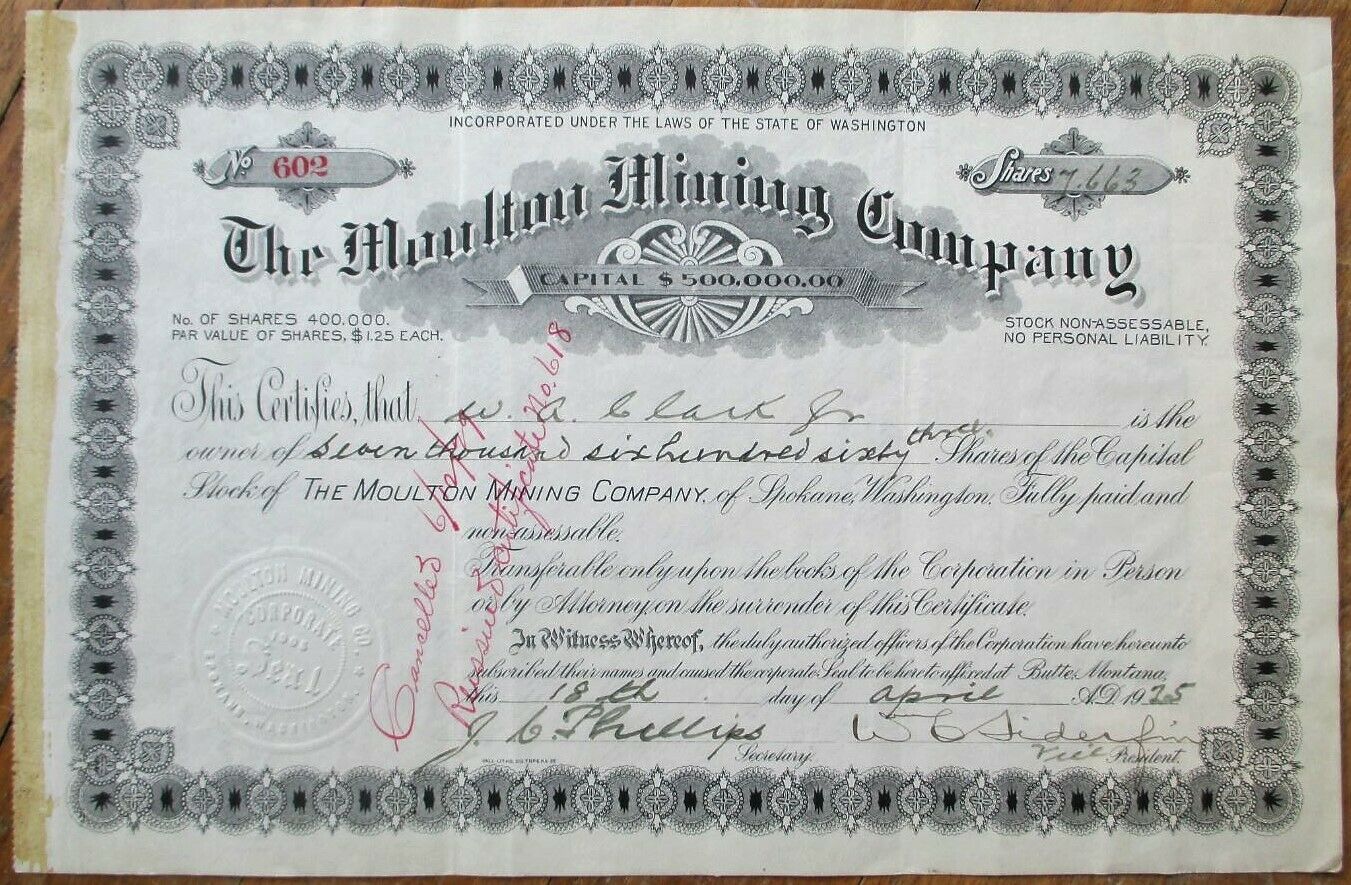 INCORPORATED UNDER THE LAWS OF THE STATE OF WASHINGTON
No 602
Shares 7,663
The Moulton Mining Company
CAPITAL $500,000.00
No. OF SHARES 400,000.
PAR VALUE OF SHARES, $1.25 EACH.
STOCK NON-ASSESSABLE,
NO PERSONAL LIABILITY.
This Certifies, that W. A. Clark Jr is the
owner of Seven thousand six hundred sixty three Shares of the Capital
Stock of THE MOULTON MINING COMPANY, of Spokane, Washington. Fully paid and
non-assessable.
Transferable only upon the books of the Corporation in Person
or by Attorney, on the surrender of this Certificate.
In Witness Whereof, the duly authorized officers of the Corporation have hereunto
subscribed their names and caused the corporate Seal to be hereto affixed at Butte, Montana,
this 18th day of April A.D. 1925
J. C. Phillips
Secretary.
Vice President.
Cancelled
Reissued Certificate No. 618
MOULTON MINING CO.
CORPORATE
Seal
SPOKANE, WASHINGTON.